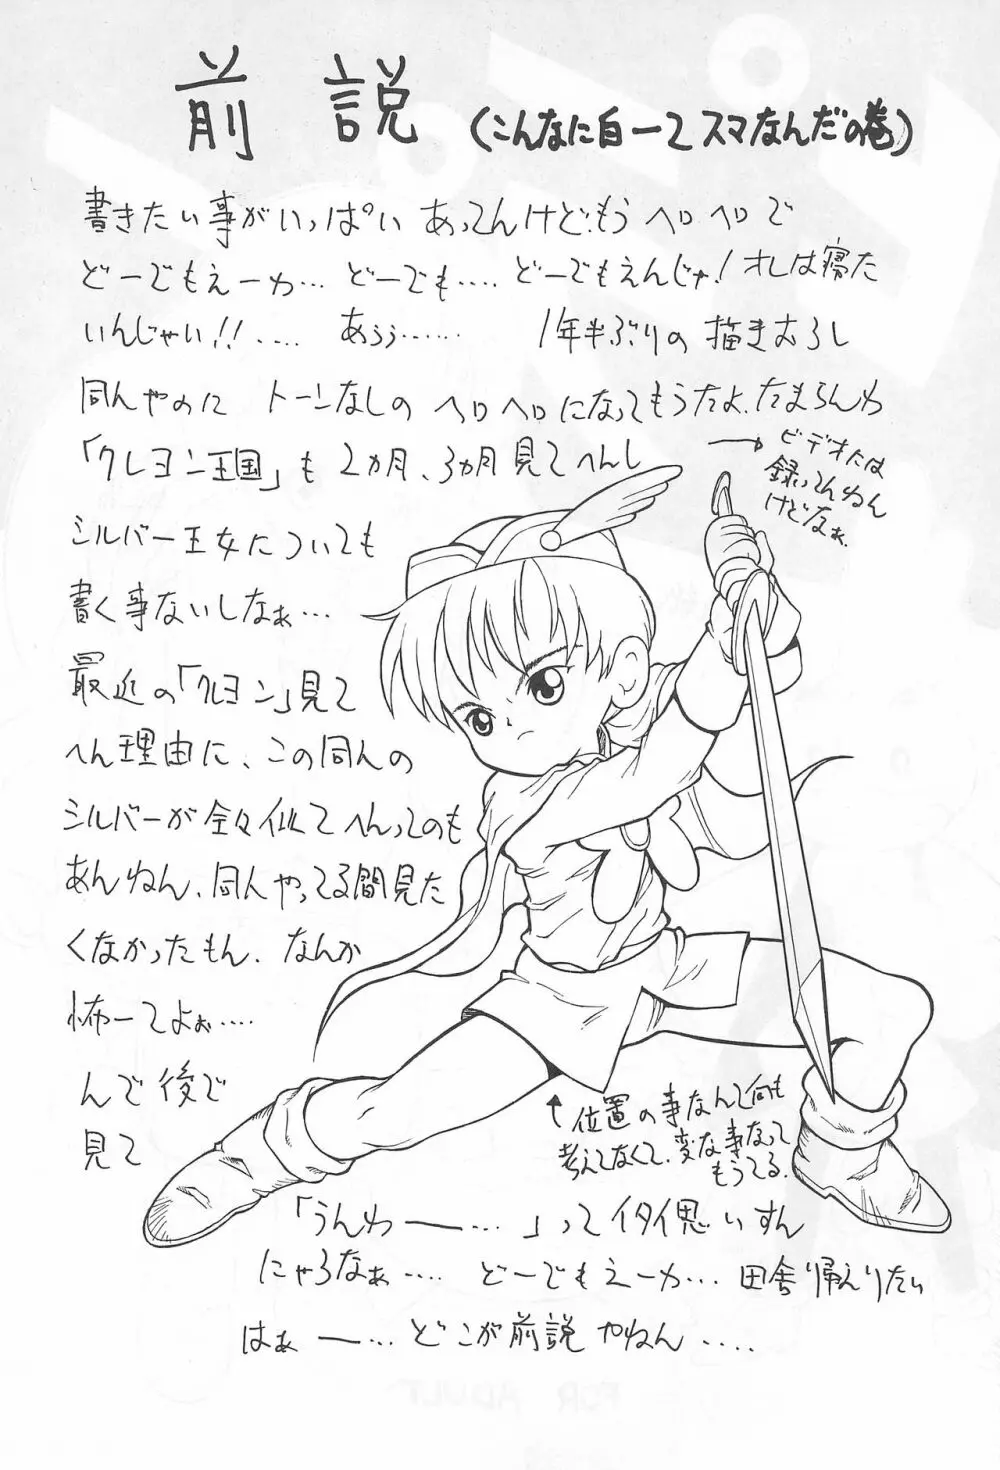 前説 (こんなに白ーてスマなんだの巻)
書きたい事がいっぱいあってんけど、もうヘロヘロで
どーでもえーわ… どーでも…. どーでもえんじゃ!オレは寝た
いんじゃい!!….. あぅぅ…… 1年半ぶりの描きおろし
同人やのに トーンなしのヘロヘロになってもうたよ、たまらんわ
「クレヨン王国」も2カ月、3カ月見てへんし
→ビデオには
録ってんねん
けどなぁ.
シルバー王女についても
書く事ないしなぁ…
最近の「クレヨン」見て
へん理由に、この同人の
シルバーが全々似てへんってのも
あんねん、同人やってる間見た
くなかったもん、なんか
怖ーてよぉ….
んで後で
見て
↑位置の事なんて何も
考えてなくて、変な事なって
もうてる.
「うんわ――…」ってイタイ思いすん
にゃろなぁ…. どーでもえーわ… 田舎帰えりたい
はぁ――… どこが前説やねん….
FOR ADULT